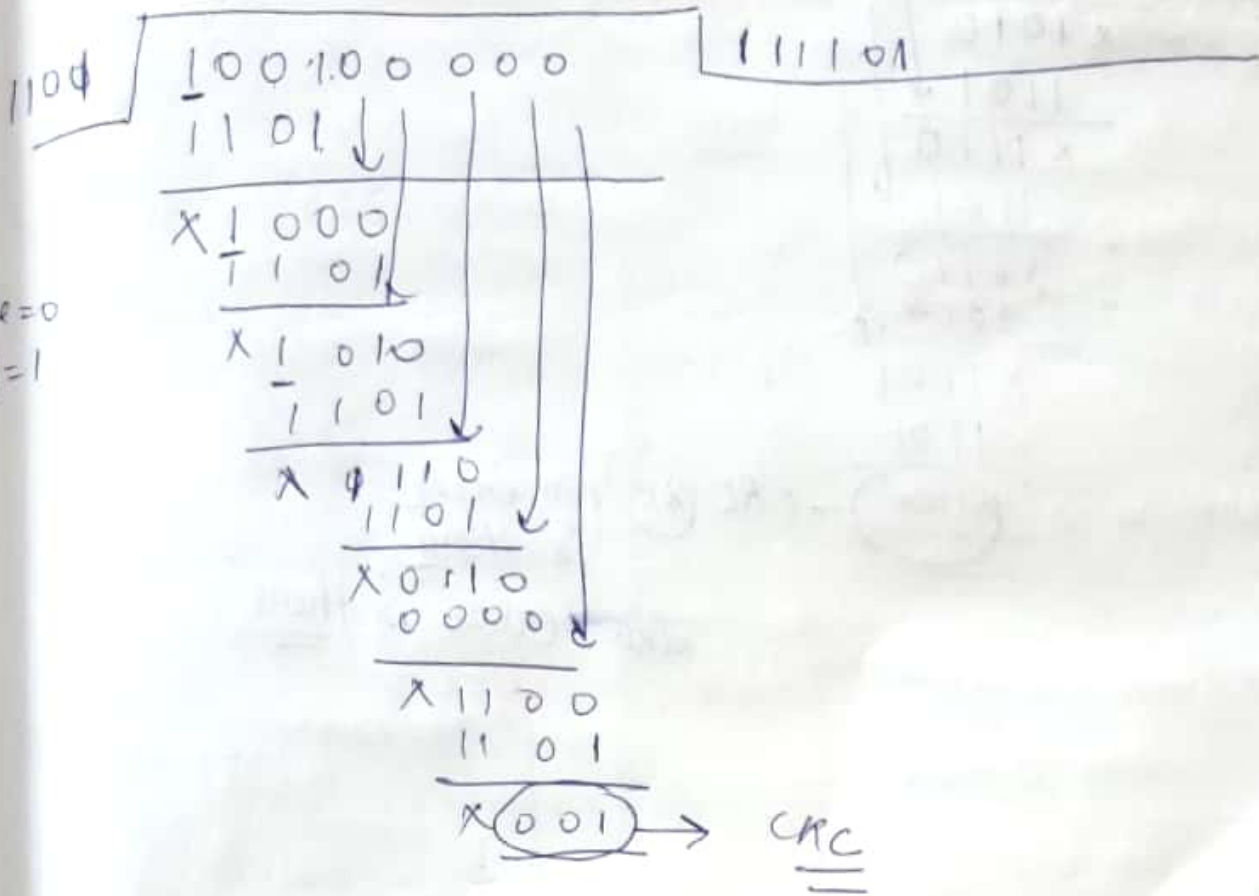 1101 100100 000 111101
1101
x 1000
1101
=0
x 1010
=1
1101
x 1110
1101
x 0110
0000
x 1100
1101
x 001 → CRC